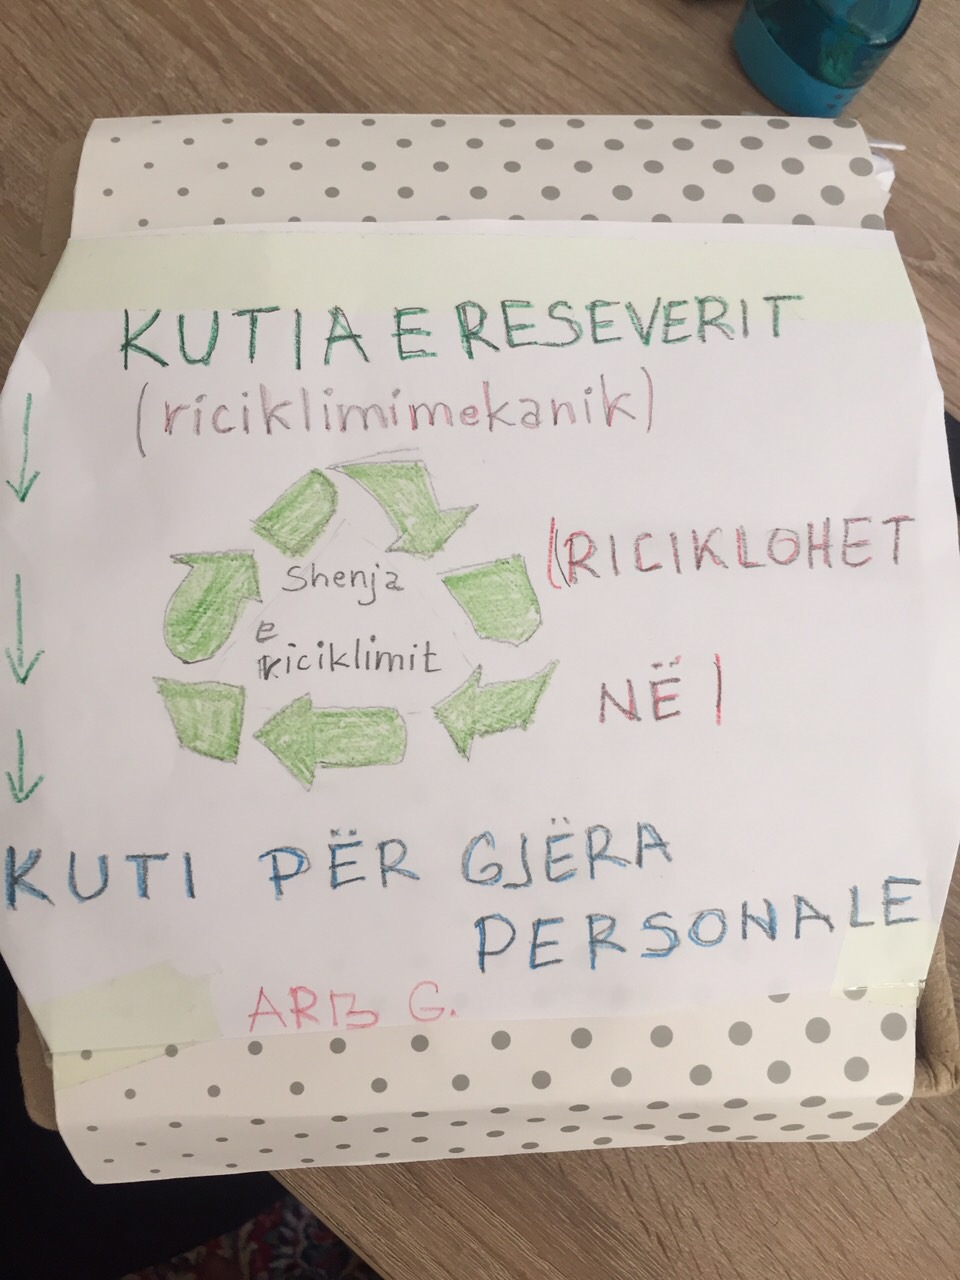 KUTIA E RESEVERIT
(riciklimimekanik)
Shenja
e
riciklimit
(RICIKLOHET
NË)
KUTI PËR GJËRA
PERSONALE
ARB G.